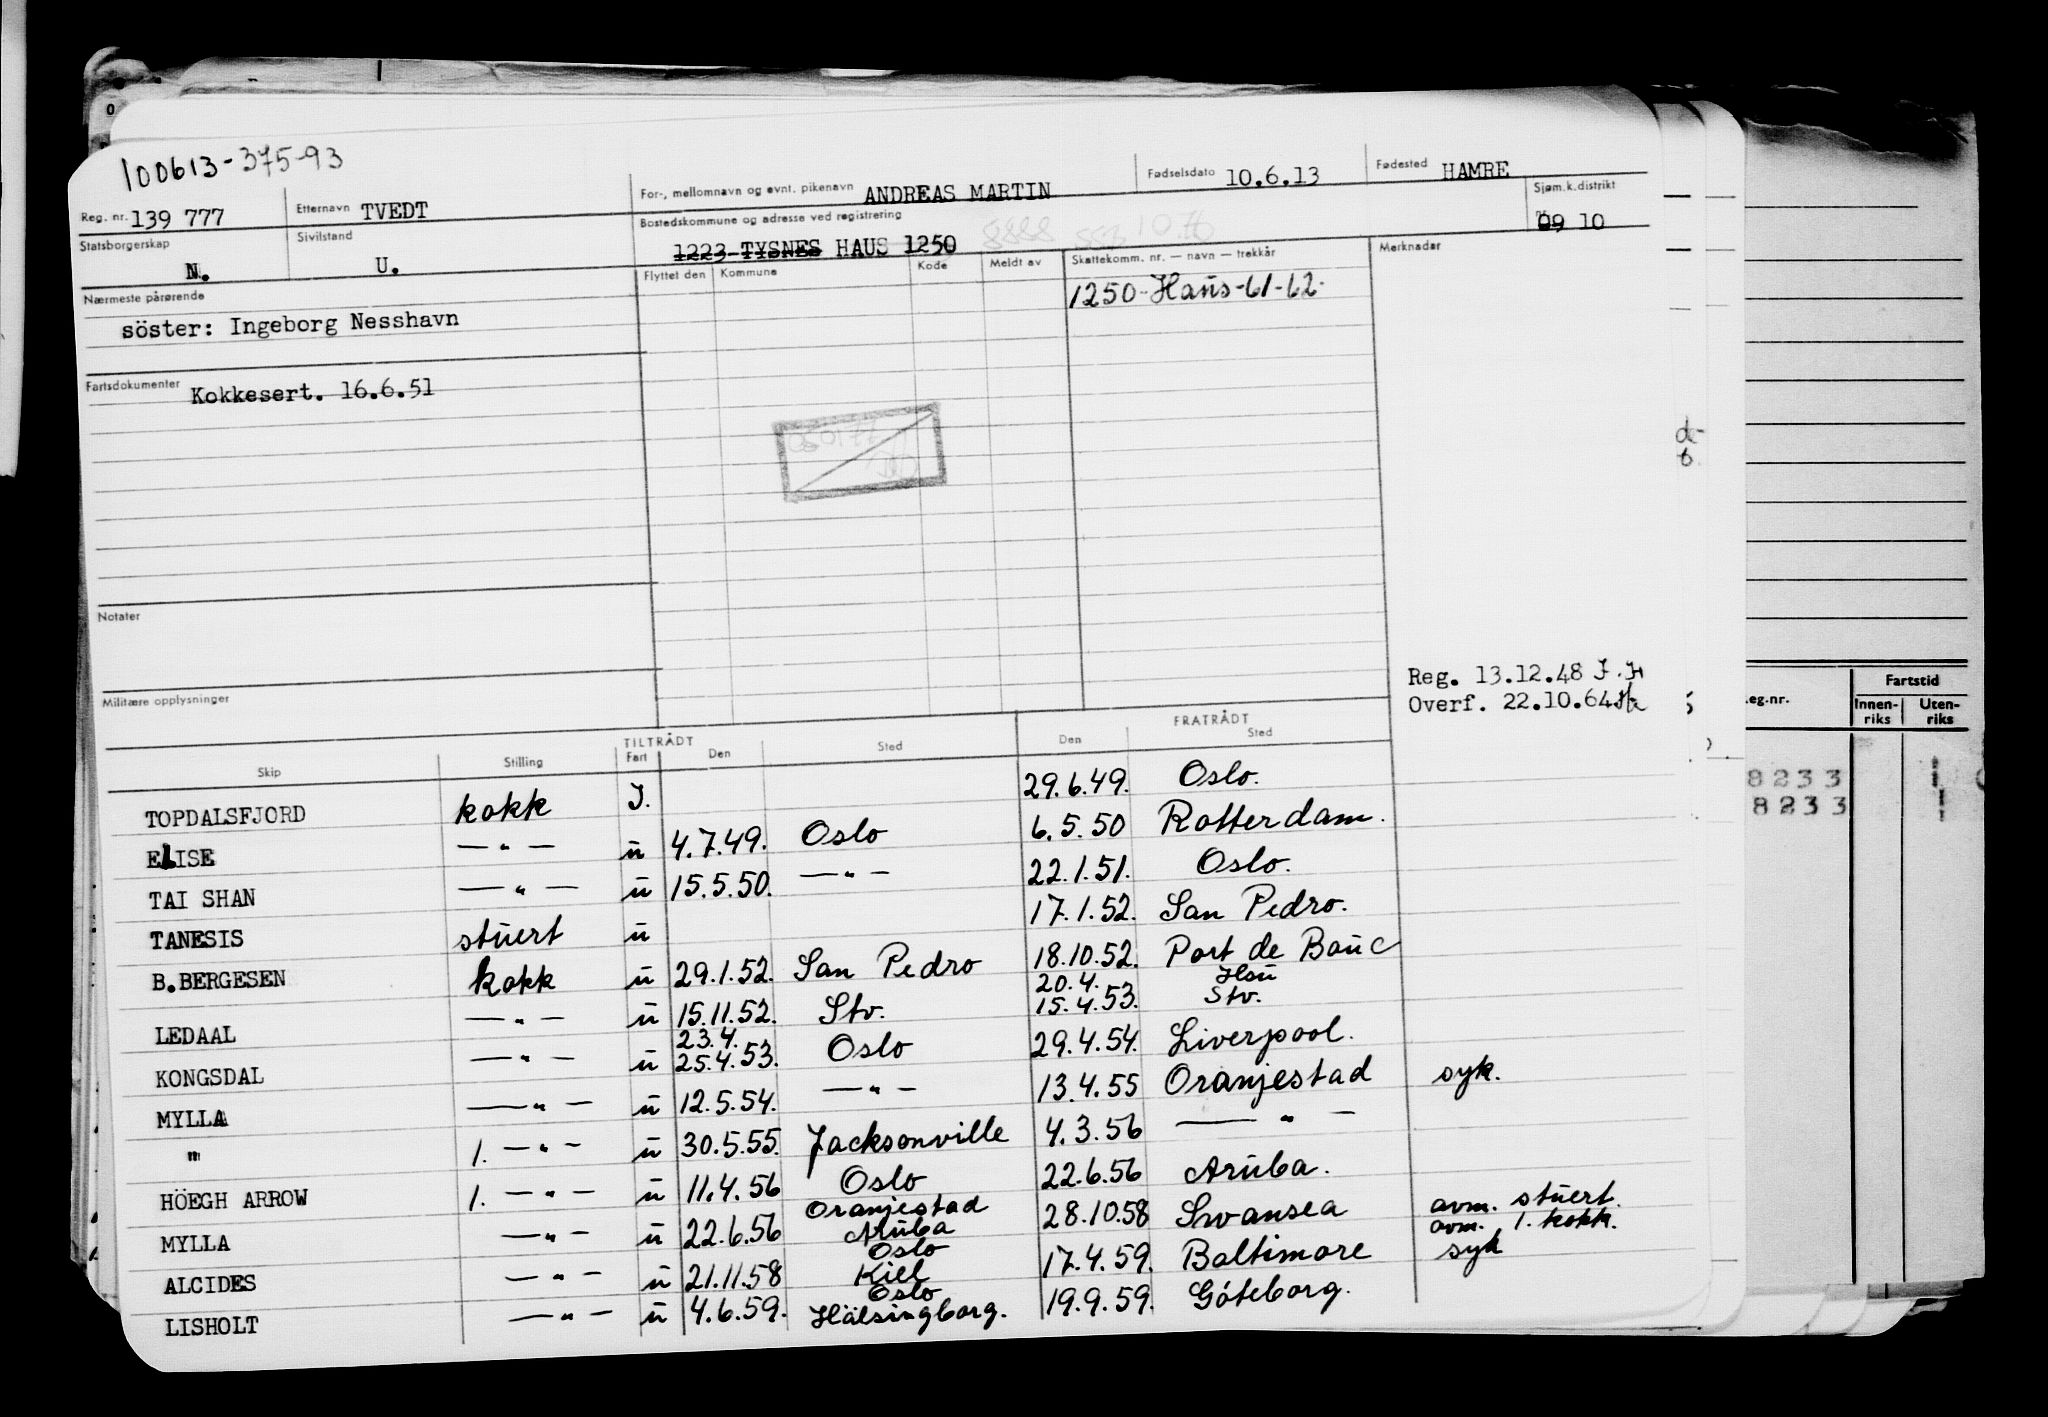 100613-375-93
Reg. nr. 139 777 Etternavn TVEDT For-, mellomnavn og evnt. pikenavn ANDREAS MARTIN Fødselsdato 10.6.13 Fødested HAMRE
Statsborgerskap N. Sivilstand U. Bostedskommune og adresse ved registrering 1223 TYSNES HAUS 1250 Sjøm.k.distrikt 09 10
Flyttet den Kommune Kode Meldt av Skattekomm. nr. — navn — trekkår Merknader
Nærmeste pårørende
1250-Haus-61-62-
söster: Ingeborg Nesshavn
Fartsdokumenter Kokkesert. 16.6.51
Notater
Militære opplysninger
Reg. 13.12.48
Overf. 22.10.64
TILTRÅDT FRATRÅDT
Skip Stilling Fart Den Sted Den Sted
TOPDALSFJORD kokk I. 29.6.49. Oslo.
ELISE —"— u 4.7.49. Oslo 6.5.50 Rotterdam.
TAI SHAN —"— u 15.5.50. —"— 22.1.51. Oslo.
TANESIS stuert u 17.1.52. San Pedro.
B.BERGESEN kokk u 29.1.52. San Pedro 18.10.52. Port de Bouc
LEDAAL —"— u 15.11.52. Stv. 20.4. 15.4.53. Hsu Stv.
KONGSDAL —"— u 23.4. 25.4.53. Oslo 29.4.54. Liverpool.
MYLLA —"— u 12.5.54. —"— 13.4.55 Oranjestad syk.
" 1. —"— u 30.5.55. Jacksonville 4.3.56 —"—
HÖEGH ARROW 1. —"— u 11.4.56 Oslo 22.6.56 Aruba.
MYLLA —"— u 22.6.56 Oranjestad Aruba 28.10.58 Swansea avm. stuert. avm. 1. kokk.
ALCIDES —"— u 21.11.58 Oslo Kiel 17.4.59. Baltimore syk
LISHOLT —"— u 4.6.59. Oslo Hälsingborg. 19.9.59. Göteborg.
eg.nr. Fartstid
Innen-riks Uten-riks
8233
8233